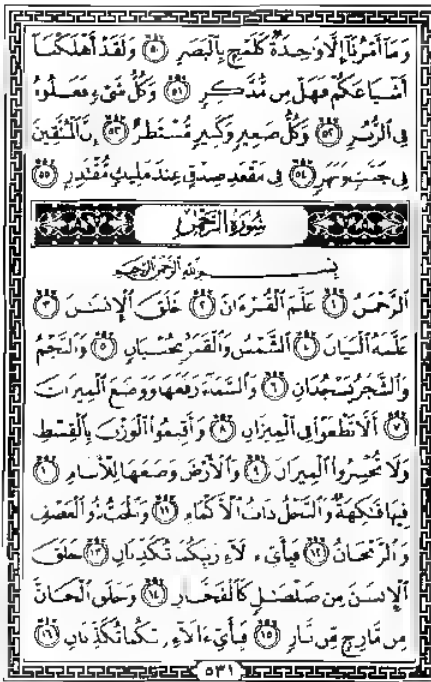 وَمَآ أَمْرُنَآ إِلَّا وَٰحِدَةٌ كَلَمْحٍۭ بِٱلْبَصَرِ ٥٠ وَلَقَدْ أَهْلَكْنَآ
أَشْيَاعَكُمْ فَهَلْ مِن مُّدَّكِرٍ ٥١ وَكُلُّ شَىْءٍ فَعَلُوهُ
فِى ٱلزُّبُرِ ٥٢ وَكُلُّ صَغِيرٍ وَكَبِيرٍ مُّسْتَطَرٌ ٥٣ إِنَّ ٱلْمُتَّقِينَ
فِى جَنَّٰتٍ وَنَهَرٍ ٥٤ فِى مَقْعَدِ صِدْقٍ عِندَ مَلِيكٍ مُّقْتَدِرٍۭ ٥٥
سُورَةُ الرَّحْمَٰن
بِسْمِ ٱللَّهِ ٱلرَّحْمَٰنِ ٱلرَّحِيمِ
ٱلرَّحْمَٰنُ ١ عَلَّمَ ٱلْقُرْءَانَ ٢ خَلَقَ ٱلْإِنسَٰنَ ٣
عَلَّمَهُ ٱلْبَيَانَ ٤ ٱلشَّمْسُ وَٱلْقَمَرُ بِحُسْبَانٍ ٥ وَٱلنَّجْمُ
وَٱلشَّجَرُ يَسْجُدَانِ ٦ وَٱلسَّمَآءَ رَفَعَهَا وَوَضَعَ ٱلْمِيزَانَ
٧ أَلَّا تَطْغَوْا۟ فِى ٱلْمِيزَانِ ٨ وَأَقِيمُوا۟ ٱلْوَزْنَ بِٱلْقِسْطِ
وَلَا تُخْسِرُوا۟ ٱلْمِيزَانَ ٩ وَٱلْأَرْضَ وَضَعَهَا لِلْأَنَامِ ١٠
فِيهَا فَٰكِهَةٌ وَٱلنَّخْلُ ذَاتُ ٱلْأَكْمَامِ ١١ وَٱلْحَبُّ ذُو ٱلْعَصْفِ
وَٱلرَّيْحَانُ ١٢ فَبِأَىِّ ءَالَآءِ رَبِّكُمَا تُكَذِّبَانِ ١٣ خَلَقَ
ٱلْإِنسَٰنَ مِن صَلْصَٰلٍ كَٱلْفَخَّارِ ١٤ وَخَلَقَ ٱلْجَآنَّ
مِن مَّارِجٍ مِّن نَّارٍ ١٥ فَبِأَىِّ ءَالَآءِ رَبِّكُمَا تُكَذِّبَانِ ١٦
٥٣١